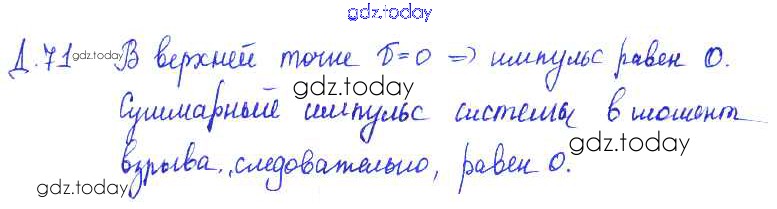 gdz.today
Д.71 gdz.today В верхней точке v=0 => импульс равен 0.
gdz.today
Суммарный импульс системы в момент
gdz.today
взрыва, следовательно, равен 0.
gdz.today